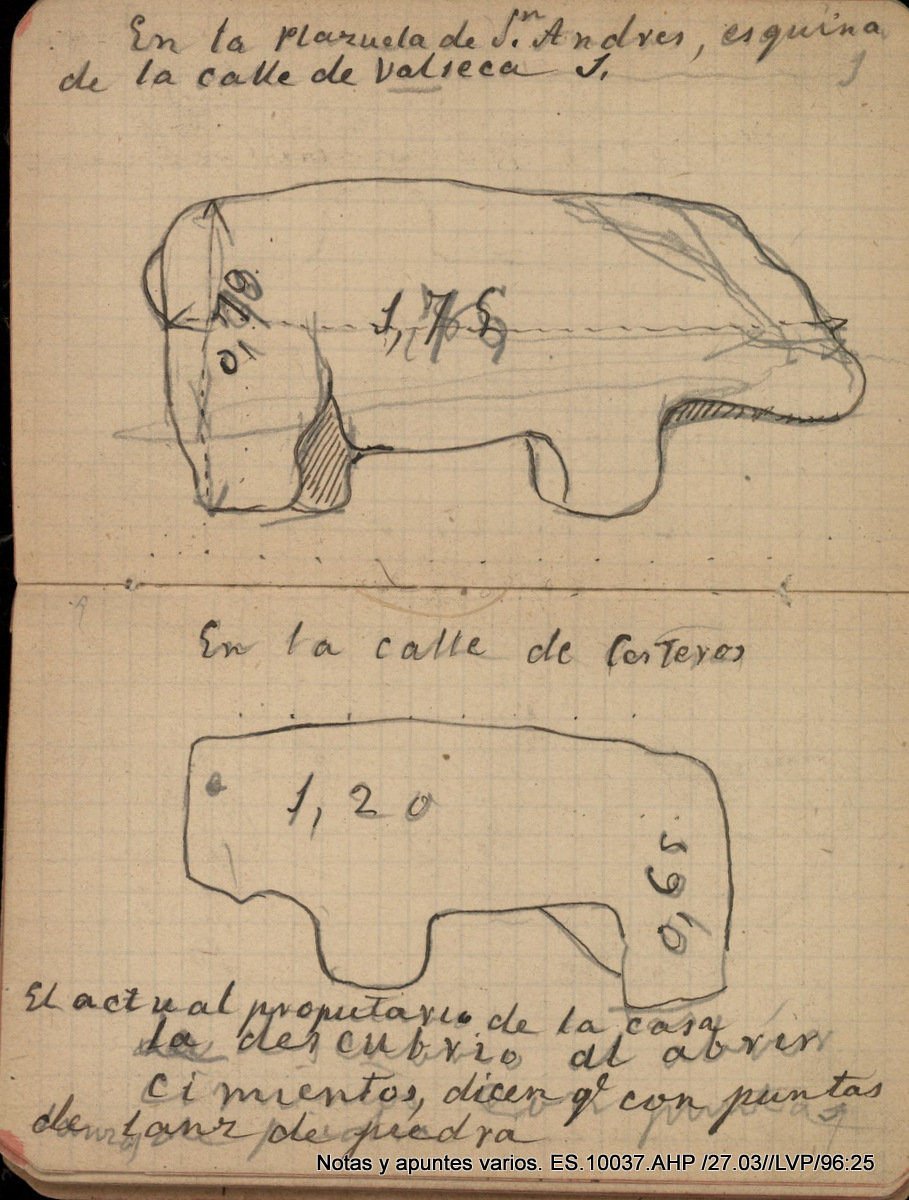 En la plazuela de Sn. Andres, esquina
de la calle de Valseca 1.
1,75
En la calle de
1,20
0,65
El actual propietario de la casa
la descubrio al abrir
cimientos, dicen qe con puntas
de lanz de piedra
Notas y apuntes varios. ES.10037.AHP /27.03//LVP/96:25